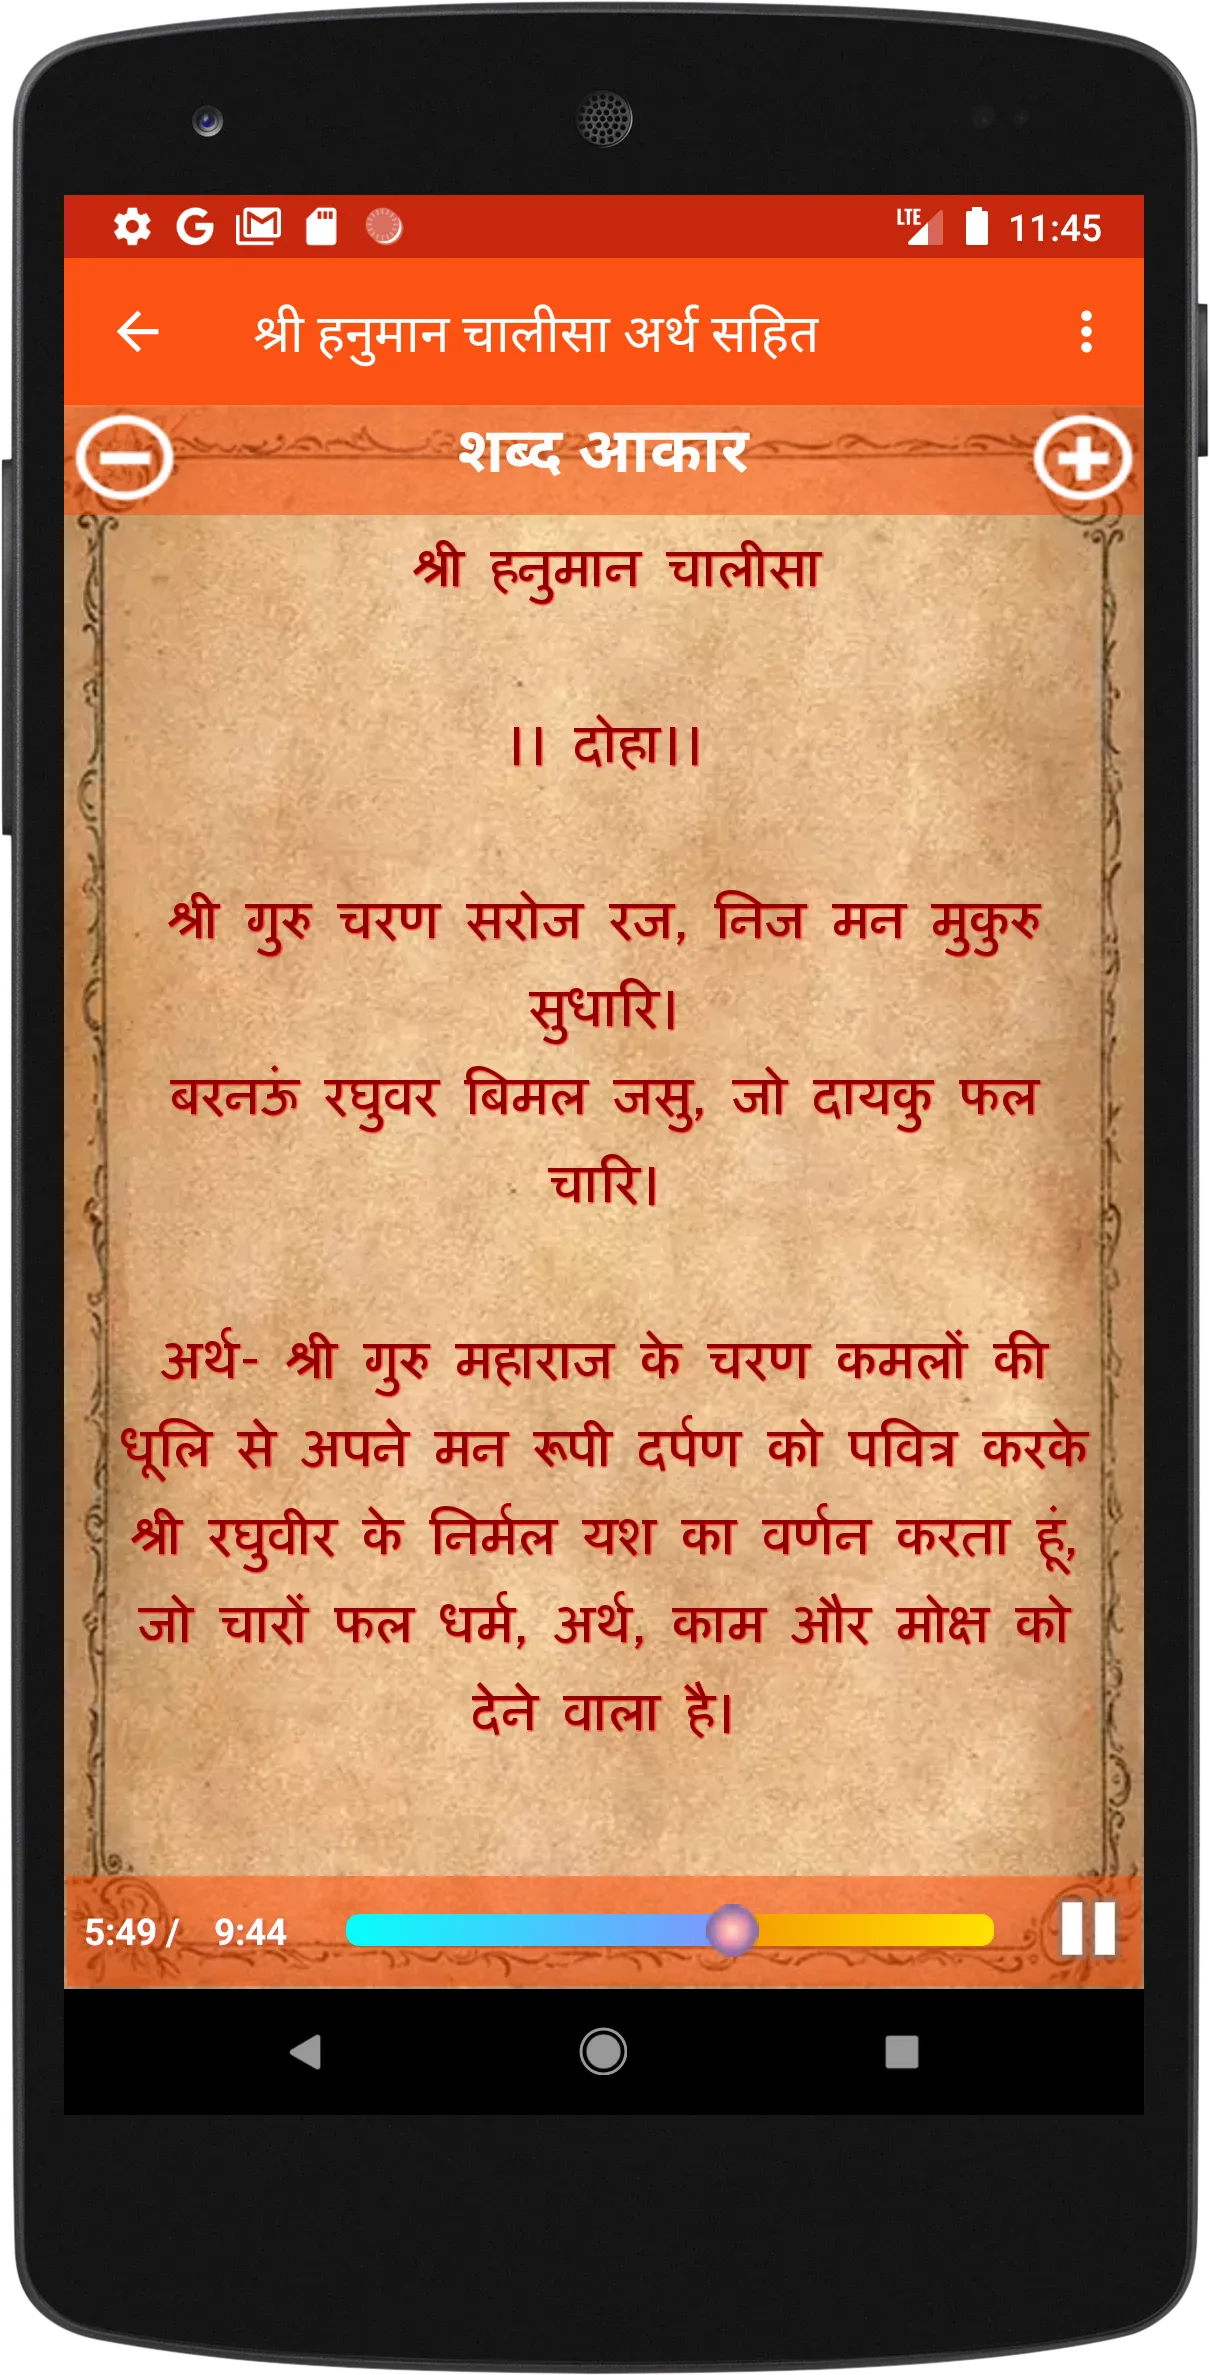 LTE 11:45
श्री हनुमान चालीसा अर्थ सहित
शब्द आकार
श्री हनुमान चालीसा
।। दोहा।।
श्री गुरु चरण सरोज रज, निज मन मुकुरु
सुधारि।
बरनऊं रघुवर बिमल जसु, जो दायकु फल
चारि।
अर्थ- श्री गुरु महाराज के चरण कमलों की
धूलि से अपने मन रूपी दर्पण को पवित्र करके
श्री रघुवीर के निर्मल यश का वर्णन करता हूं,
जो चारों फल धर्म, अर्थ, काम और मोक्ष को
देने वाला है।
5:49 / 9:44